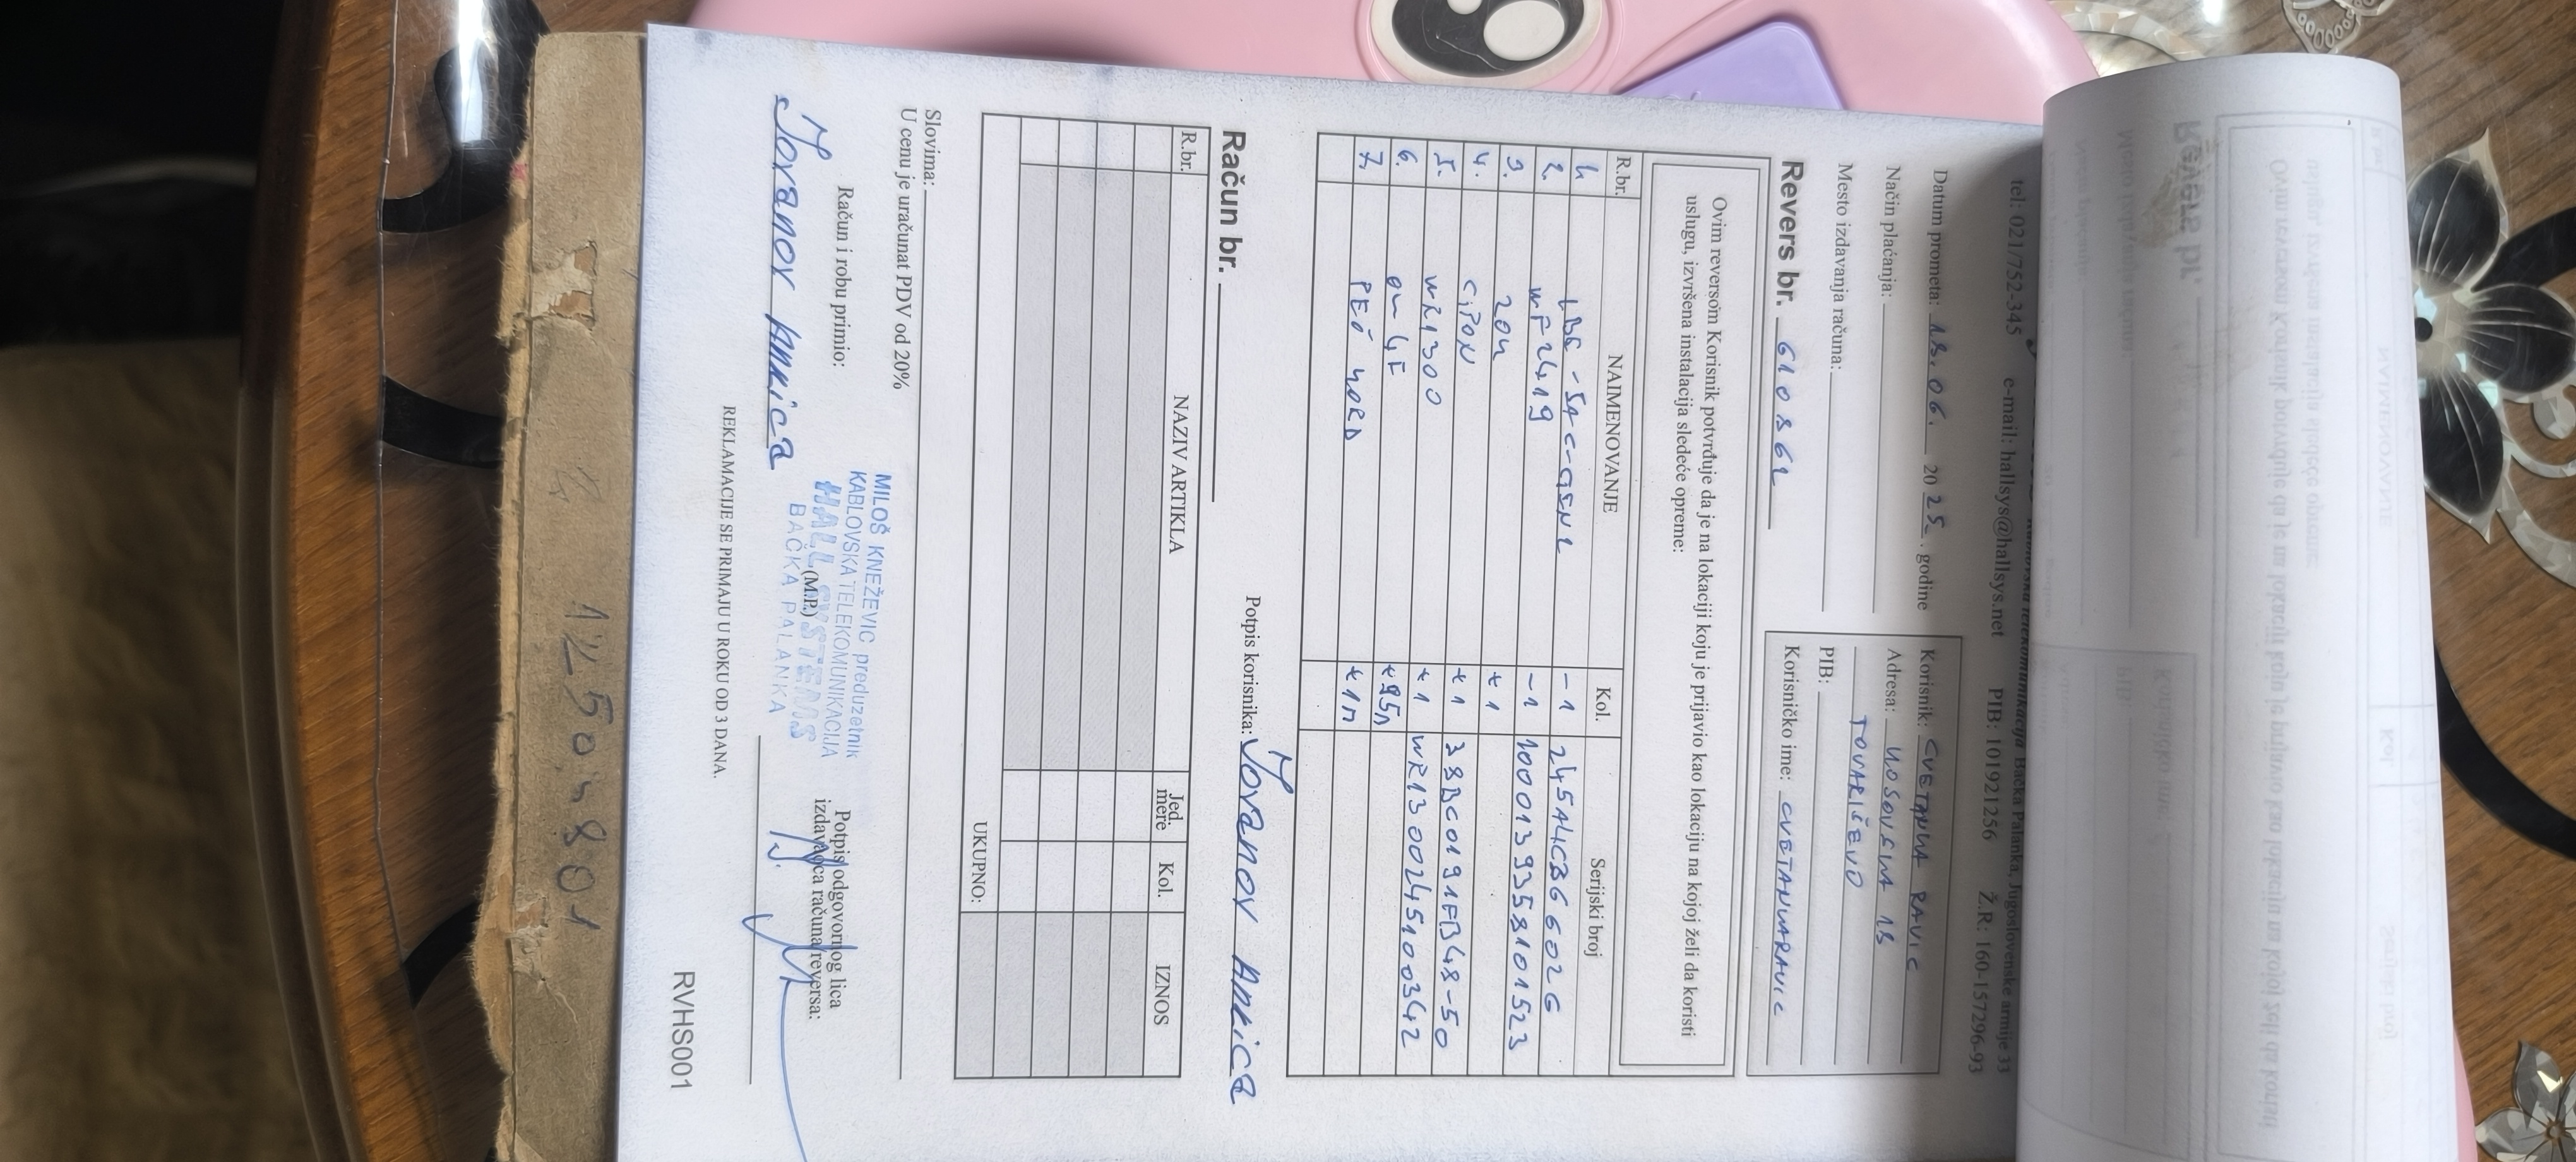 tel: 021/752-345 e-mail: hallsys@hallsys.net PIB: 101921256 Ž.R: 160-157296-93
Datum prometa: 18.06. 2025. godine
Način plaćanja:
Mesto izdavanja računa:
Korisnik: CVETANKA RAVIĆ
Adresa: KOSOVSKA 18
TOVARIŠEVO
PIB:
Korisničko ime: CVETANKARAVIC
Revers br. 610862
Ovim reversom Korisnik potvrđuje da je na lokaciji koju je prijavio kao lokaciju na kojoj želi da koristi
uslugu, izvršena instalacija sledeće opreme:
R.br. NAIMENOVANJE Kol. Serijski broj
1. -1 245A4CB66026
2. WF2419 -1 1000139358101523
3. +1
4. +1 38BC0191FB48-50
5. WR1300 +1 WR13000245100342
6.
7.
Potpis korisnika: Jovanov Ankica
Račun br.
R.br. NAZIV ARTIKLA Jed. mere Kol. IZNOS
UKUPNO:
Slovima:
U cenu je uračunat PDV od 20%
Račun i robu primio:
Jovanov Ankica
MILOŠ KNEŽEVIĆ preduzetnik
KABLOVSKA TELEKOMUNIKACIJA
HALL SYSTEMS
(M.P.)
BAČKA PALANKA
Potpis odgovornog lica
izdavaoca računa/reversa:
REKLAMACIJE SE PRIMAJU U ROKU OD 3 DANA.
RVHS001